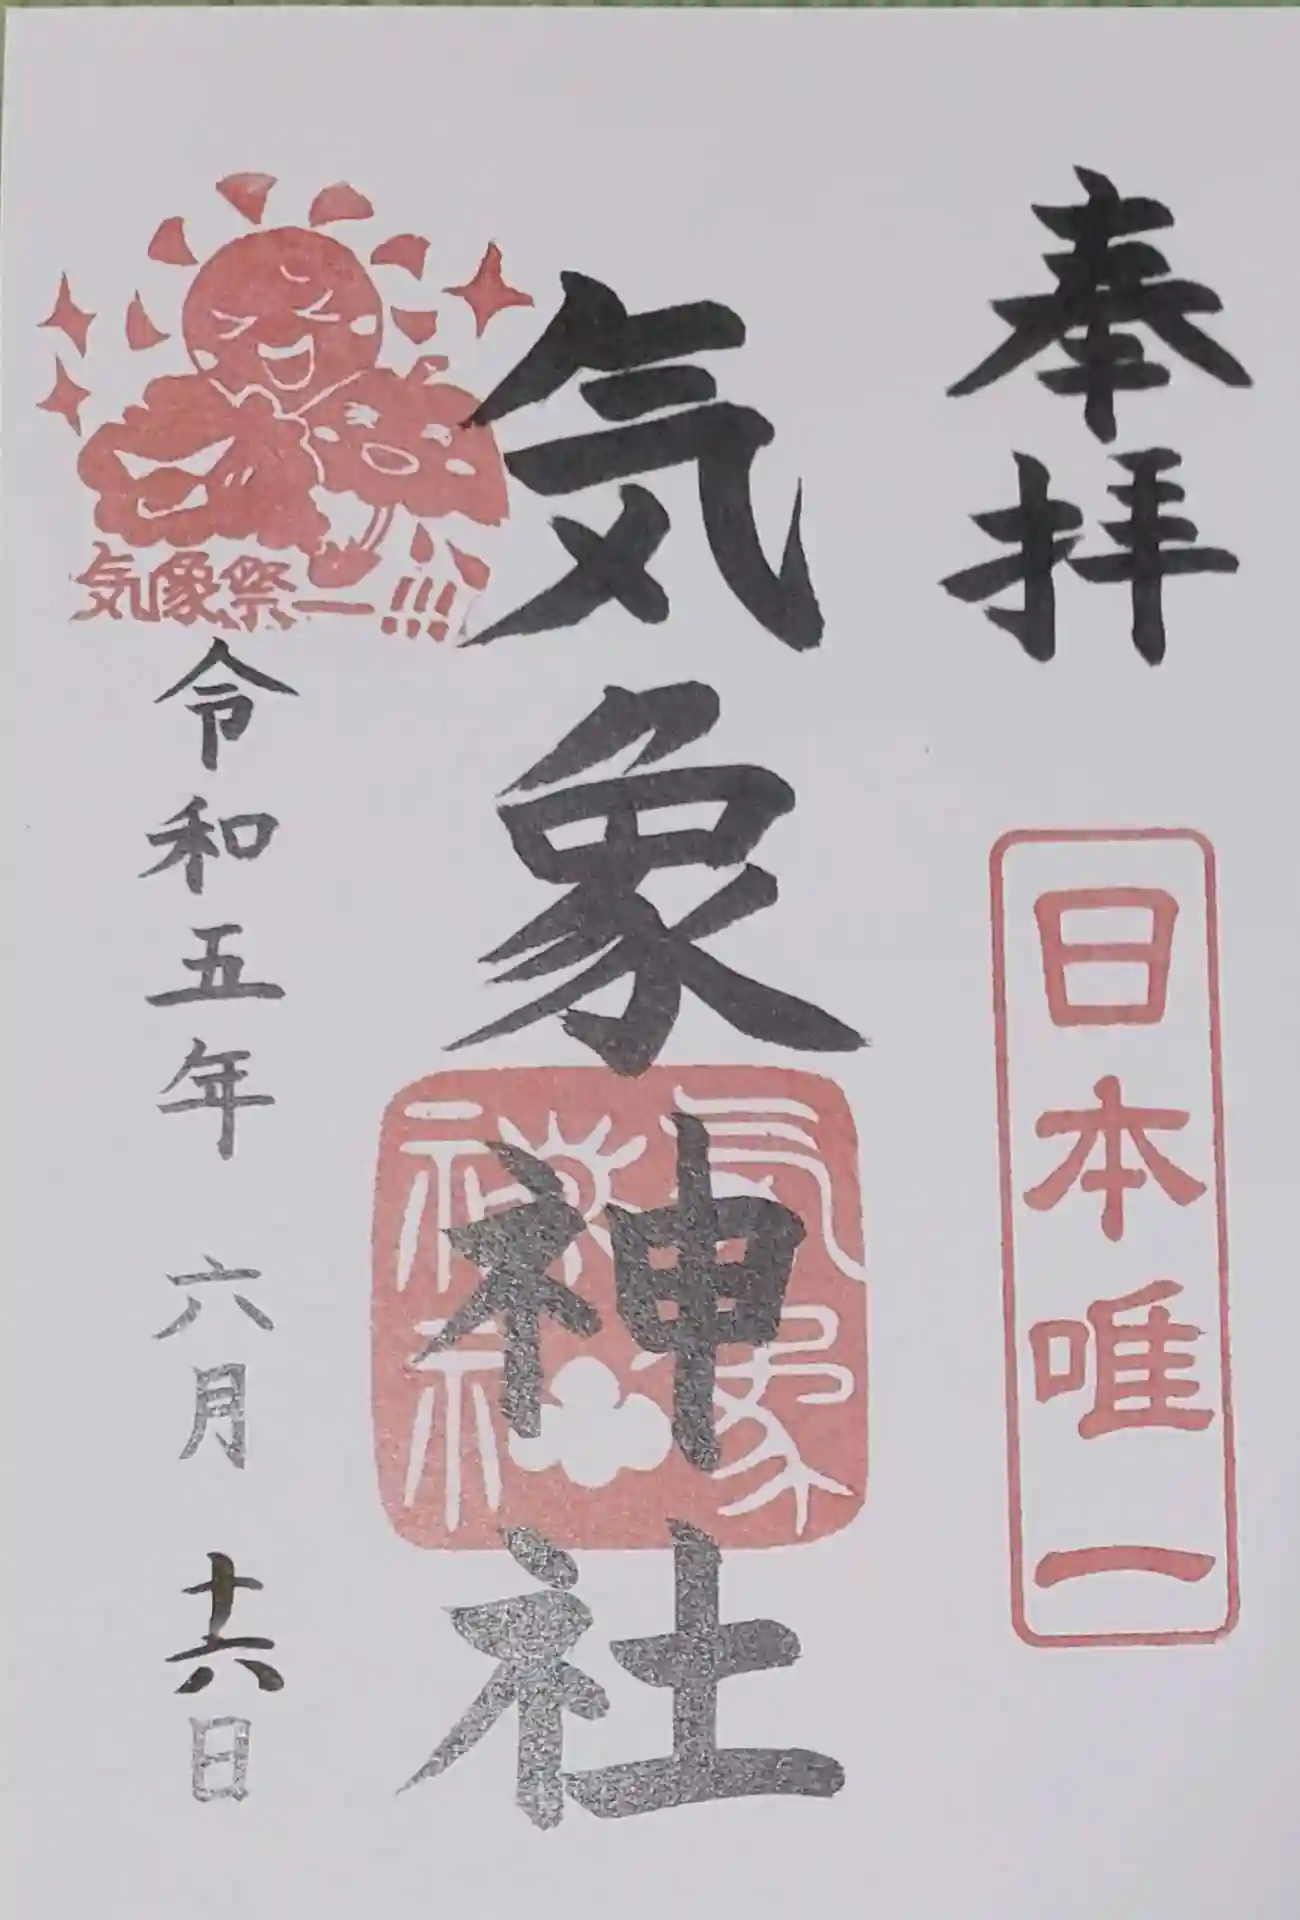 奉拝
日本唯一
気象神社
気象
神社
気象祭ー!!!
令和五年 六月 十六日